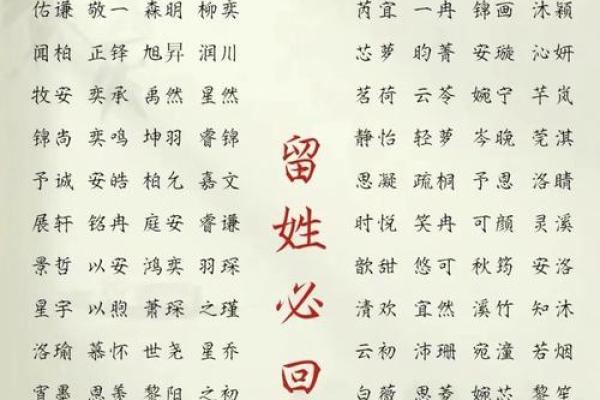 佑谦 敬一 森明 柳奕
闻柏 正铎 旭昇 润川
牧安 奕承 禹然 星然
锦尚 奕鸣 坤羽 睿锦
予诚 安皓 柏允 嘉文
展轩 铭冉 庭安 睿谦
景哲 以安 鸿奕 羽琛
星宇 以煦 萧琛 之瑾
洛瑜 慕怀 世尧 星乔
黎阳 之初
留姓必回
芮宜 一冉 锦画 沐颖
芯萝 昀菁 安璇 沁妍
茗荷 云苓 婉宁 芊岚
静怡 轻萝 岑晚 莞淇
思凝 疏桐 予恩 洛晴
时悦 笑冉 可颜 灵溪
歆甜 悠可 秋筠 安洛
清欢 宜然 溪竹 知沐
云初 沛珊 宛潼 若烟
白薇 思菱 婉芯 黎笙